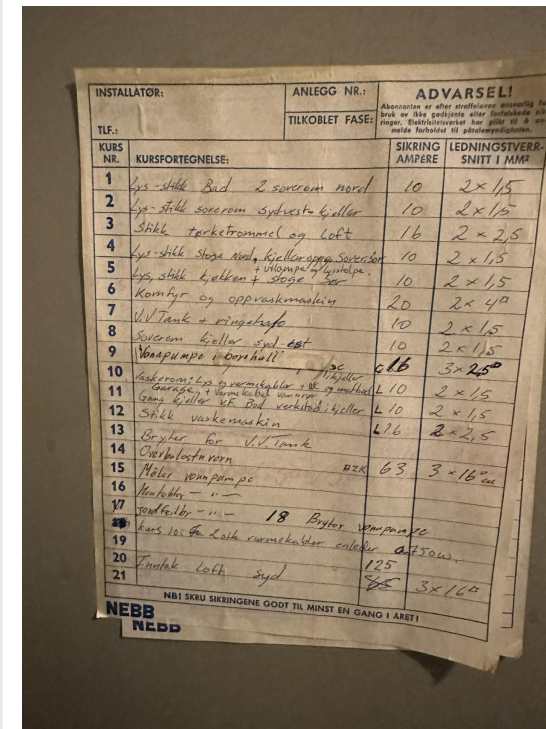 INSTALLATØR:
TLF.:
ANLEGG NR.:
TILKOBLET FASE:
ADVARSEL!
Abonnenten er efter straffeloven ansvarlig fo
bruk av ikke godkjente eller forfalskede sik
ringer. Elektrisitetsverket har plikt til å an
melde forholdet til påtalemyndigheten.
KURS NR. KURSFORTEGNELSE: SIKRING AMPERE LEDNINGSTVERR- SNITT I MM²
1 Lys-stikk Bad 2 soverom nord 10 2 x 1,5
2 Lys-stikk soverom sydvest + kjeller 10 2 x 1,5
3 Stikk tørketrommel og Loft 16 2 x 2,5
4 Lys-stikk Stoge Nord, kjelleroppg. Soversør 10 2 x 1,5
+ utelampe og lysstolpe.
5 Lys, stikk kjøkken + stoge Sør 10 2 x 1,5
6 Komfyr og oppvaskmaskin 20 2 x 4□
7 V.V Tank + ringetrafo 10 2 x 1,5
8 Soverom kjeller syd-øst 10 2 x 1,5
9 "Vannpumpe i borehull" 16 3 x 2,5□
10 Vaskerom: Lys og varmekabler + og matbod i kjeller L 10 2 x 1,5
11 Garage, + Varmekabel vannrør
Gang kjeller V.F Bod verksted i kjeller L 10 2 x 1,5
12 Stikk vaskemaskin L 16 2 x 2,5
13 Bryter for V.V. Tank
14 Overbelastn.vern 63 3 x 16□ cu
15 Måler vannpumpe
16 Kontaktor - " -
17 Jordfeilbr - " - 18 Bryter vannpumpe
kurs 10: 2 stk varmekabler a 750w.
19
20 125
21 Inntak Loft syd 3 x 16□
NB! SKRU SIKRINGENE GODT TIL MINST EN GANG I ÅRET!
NEBB
NEBB